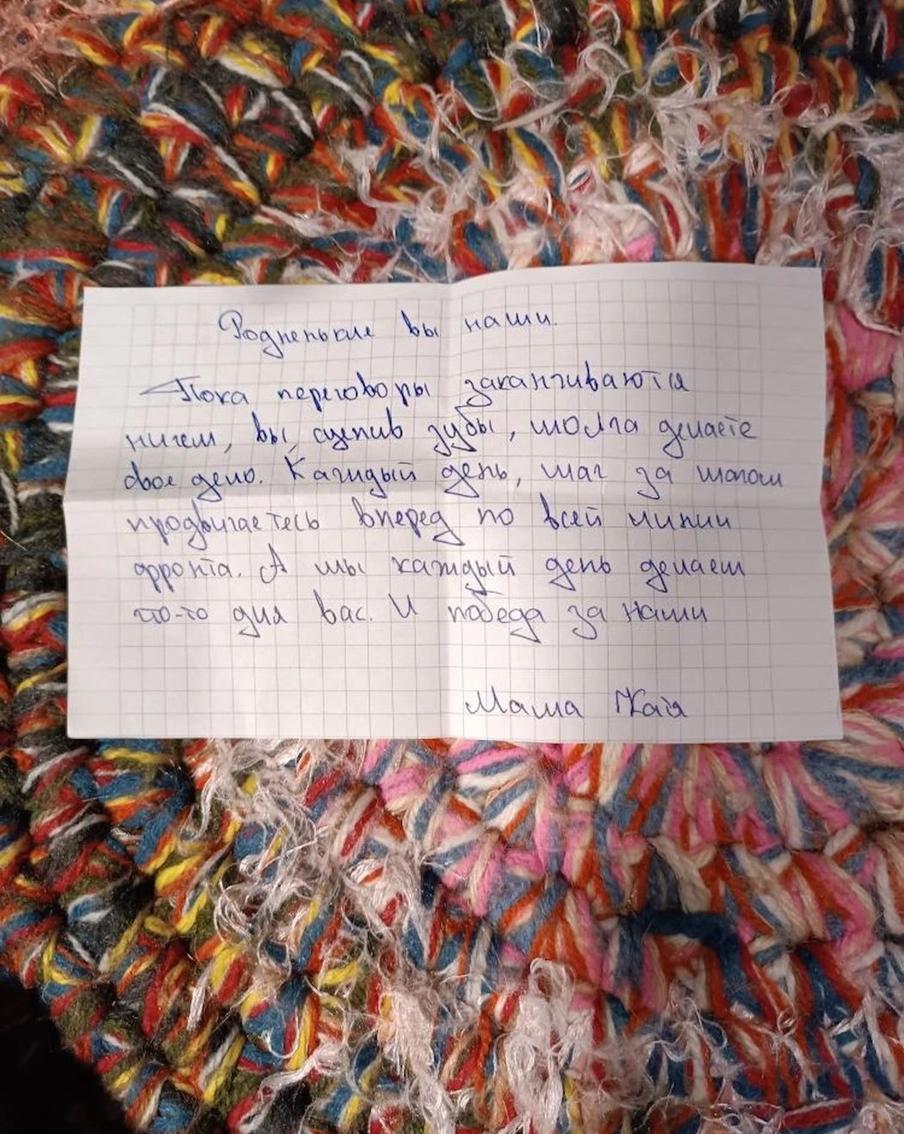 Родненькие вы наши.
Пока переговоры заканчиваются
ничем, вы, сцепив зубы, молча делаете
свое дело. Каждый день, шаг за шагом
продвигаетесь вперед по всей линии
фронта. А мы каждый день делаем
что-то для вас. И победа за нами
Маша Катя